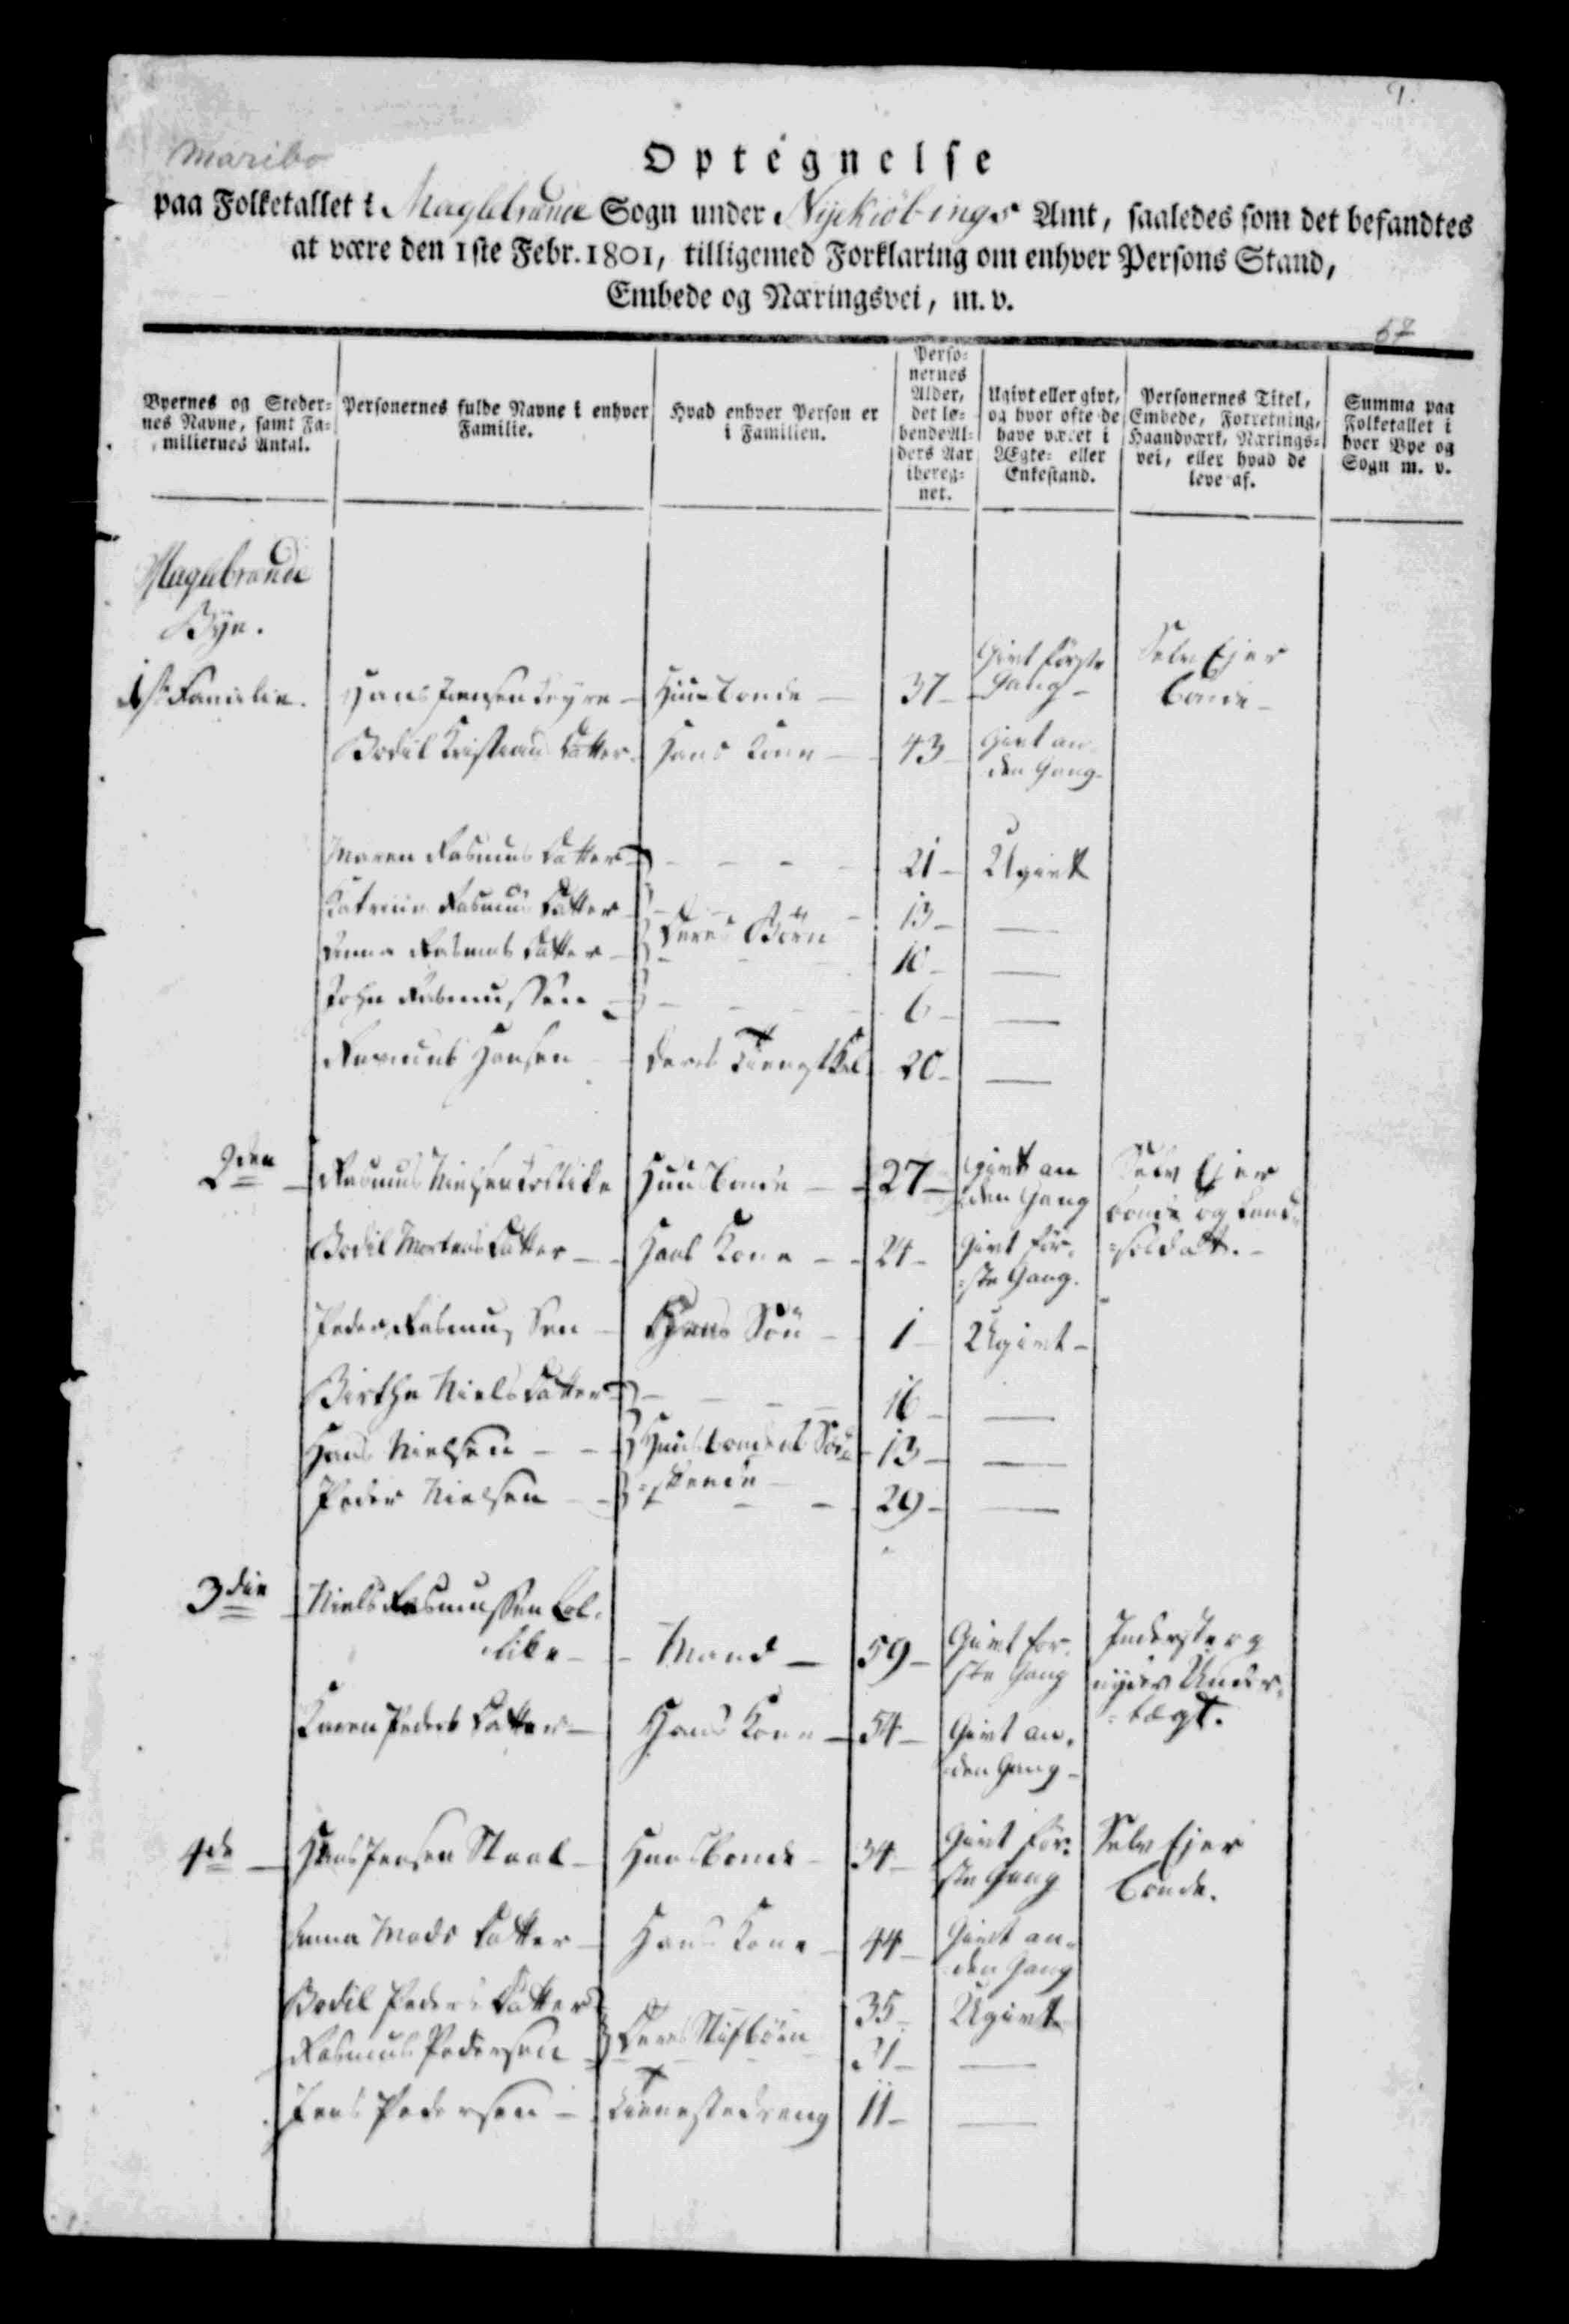 1.
Maribo
Optegnelse
paa Folketallet i Maglebrande Sogn under Nyekiöbings Amt, saaledes som det befandtes
at være den 1ste Febr. 1801, tilligemed Forklaring om enhver Persons Stand,
Embede og Næringsvei, m. v.
67
Byernes og Steder-
nes Navne, samt Fa-
miliernes Antal.
Personernes fulde Navne i enhver
Familie.
Hvad enhver Person er
i Familien.
Perso-
nernes
Alder,
det lø-
bende Al-
ders Aar
ibereg-
net.
Ugivt eller givt,
og hvor ofte de
have været i
Ægte- eller
Enkestand.
Personernes Titel,
Embede, Forretning,
Haandværk, Nærings-
vei, eller hvad de
leve af.
Summa paa
Folketallet i
hver Bye og
Sogn m. v.
Maglebrande
Bÿe.
1ste Familie. Hans Jensen Huusbonde 37 Givt første Gang Selv Ejer bonde
Bodil Kristians Datter Hans Kone 43 Givt anden Gang
Maren Rasmus Datter 21 Ugivt
Katrine Rasmus Datter 13
Deres Börn
Anna Rasmus Datter 10
John Rasmussen 6
Rasmus Hansen deres 20
2den Rasmus Nielsen Huusbonde 27 givt anden Gang Selv Ejer bonde og Landsoldatt.
Bodil Mortens Datter Hans Kone 24 Givt första Gang.
Peder Rasmussen Hans Sön 1 Ugivt
Birthe Niels Datter 16
Hans Nielsen Huusbondens Södskende 13
Peder Nielsen 29
3die Niels Rasmussen Kollike Mand 59 Givt förste Gang Inderste og nyder Undertægt.
Karen Peders Datter Hans Kone 54 Givt anden Gang
4de Hans Jensen Staal Huusbonde 34 Givt förste Gang Selv Ejer bonde.
Anna Mads Datter Hans Kone 44 Givt anden Gang
Bodil Peders Datter 35 Ugivt
Deres Stifbörn
Rasmus Pedersen 31
Jens Pedersen Tienestedreng 11